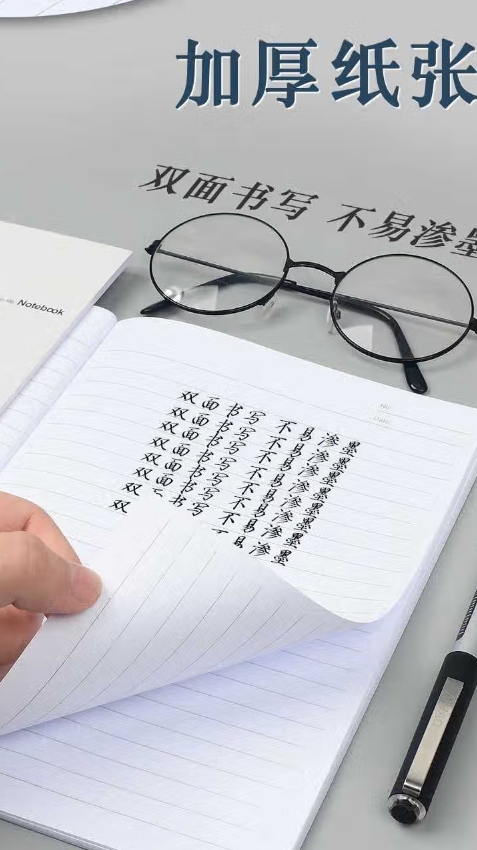 加厚纸张
双面书写 不易渗墨
Notebook
No:
Date:
双面书写 不易渗墨
双面书写 不易渗墨
双面书写 不易渗墨
双面书写 不易渗墨
双面书写 不易渗墨
双 书写 不易渗墨
双 易渗墨